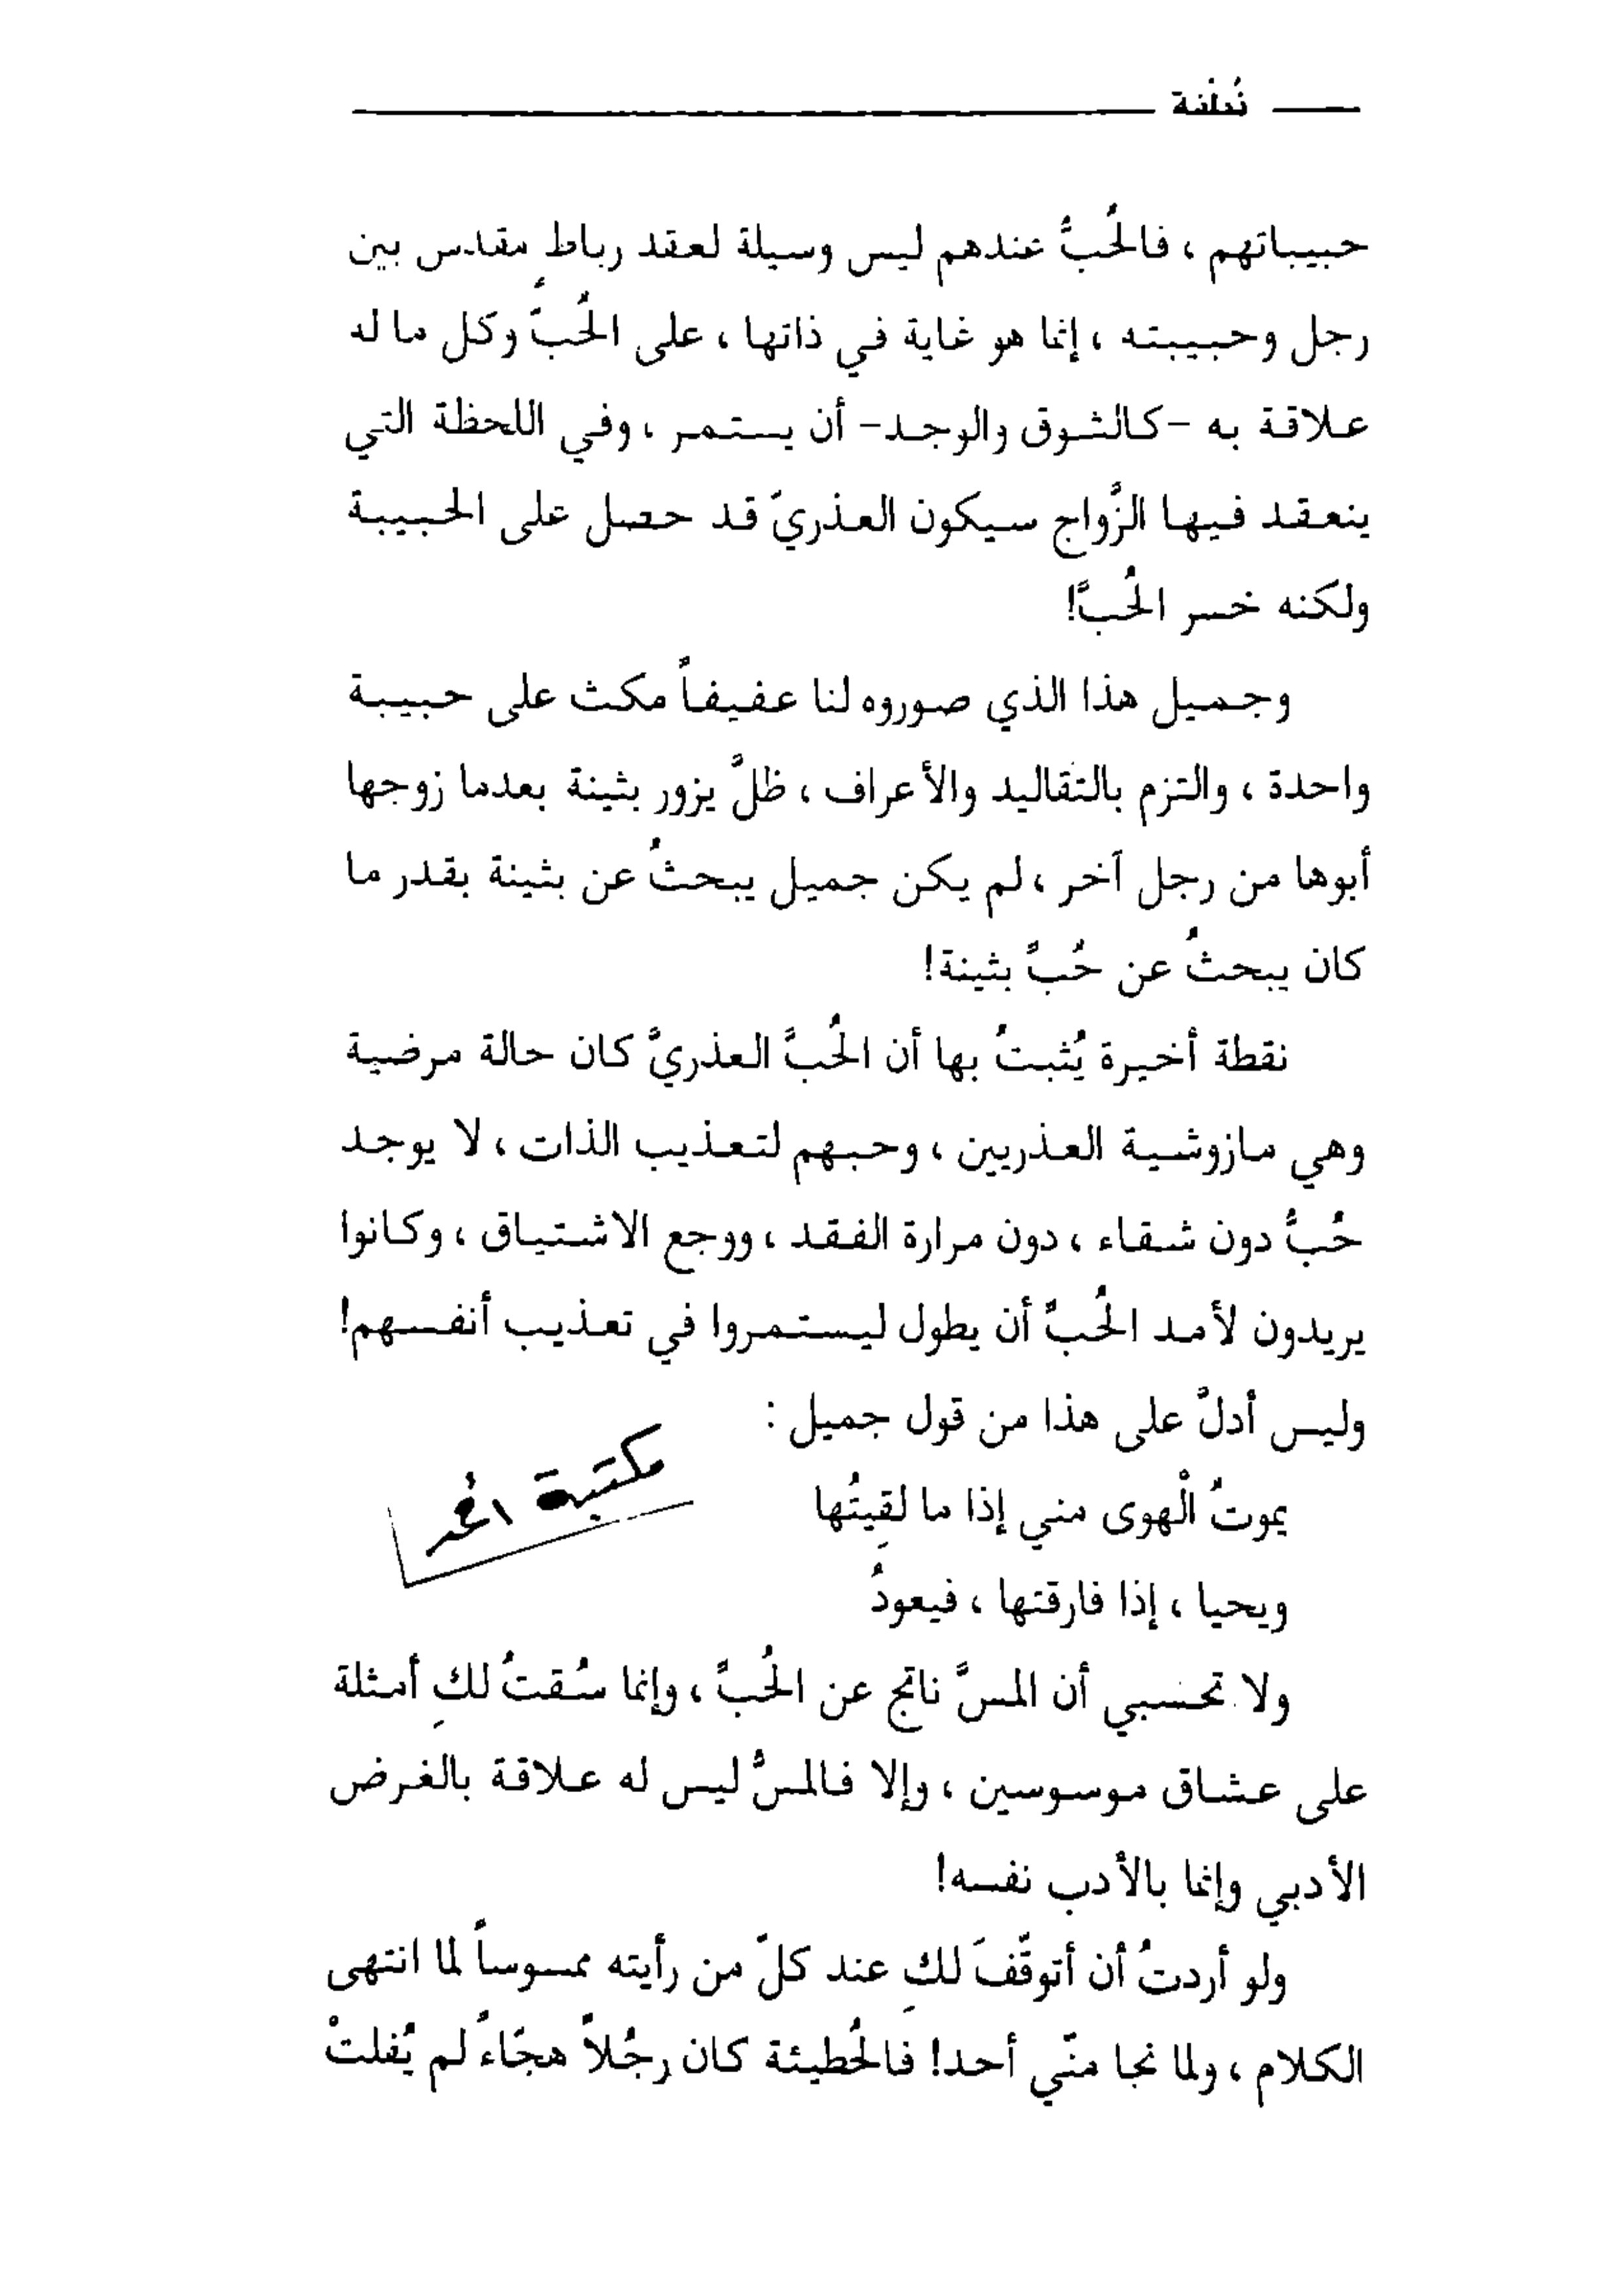 نُطْفة
حبيباتهم ، فالحُبُّ عندهم ليس وسيلة لعقد رباطٍ مقدس بين
رجل وحبيبته ، إنما هو غاية في ذاتها ، على الحُبِّ وكل ما له
علاقة به -كالشوق والوجد- أن يستمر ، وفي اللحظة التي
ينعقد فيها الزَّواج سيكون العذريّ قد حصل على الحبيبة
ولكنه خسر الحُبَّ!
وجميل هذا الذي صوروه لنا عفيفاً مكث على حبيبة
واحدة ، والتزم بالتقاليد والأعراف ، ظلَّ يزور بثينة بعدما زوجها
أبوها من رجل آخر ، لم يكن جميل يبحثُ عن بثينة بقدر ما
كان يبحثُ عن حُبِّ بثينة!
نقطة أخيرة يُثبتُ بها أن الحُبَّ العذريَّ كان حالة مرضية
وهي مازوشية العذريين ، وحبهم لتعذيب الذات ، لا يوجد
حُبُّ دون شقاء ، دون مرارة الفقد ، ووجع الاشتياق ، وكانوا
يريدون لأمد الحُبِّ أن يطول ليستمروا في تعذيب أنفسهم!
وليس أدلَّ على هذا من قول جميل :
يموتُ الْهوى مني إذا ما لقِيتُها
ويحيا ، إذا فارقتها ، فيعودُ
مكتبة
ولا تحسبي أن المسَّ ناتج عن الحُبِّ ، وإنما سُقتُ لكِ أمثلة
على عشاق موسوسين ، وإلا فالمسُّ ليس له علاقة بالغرض
الأدبي وإنما بالأدب نفسه!
ولو أردتُ أن أتوقّفَ لكِ عند كلّ من رأيته ممسوساً لما انتهى
الكلام ، ولما نجا منّي أحد! فالحُطيئة كان رجُلاً هجّاءً لم يُفلتْ